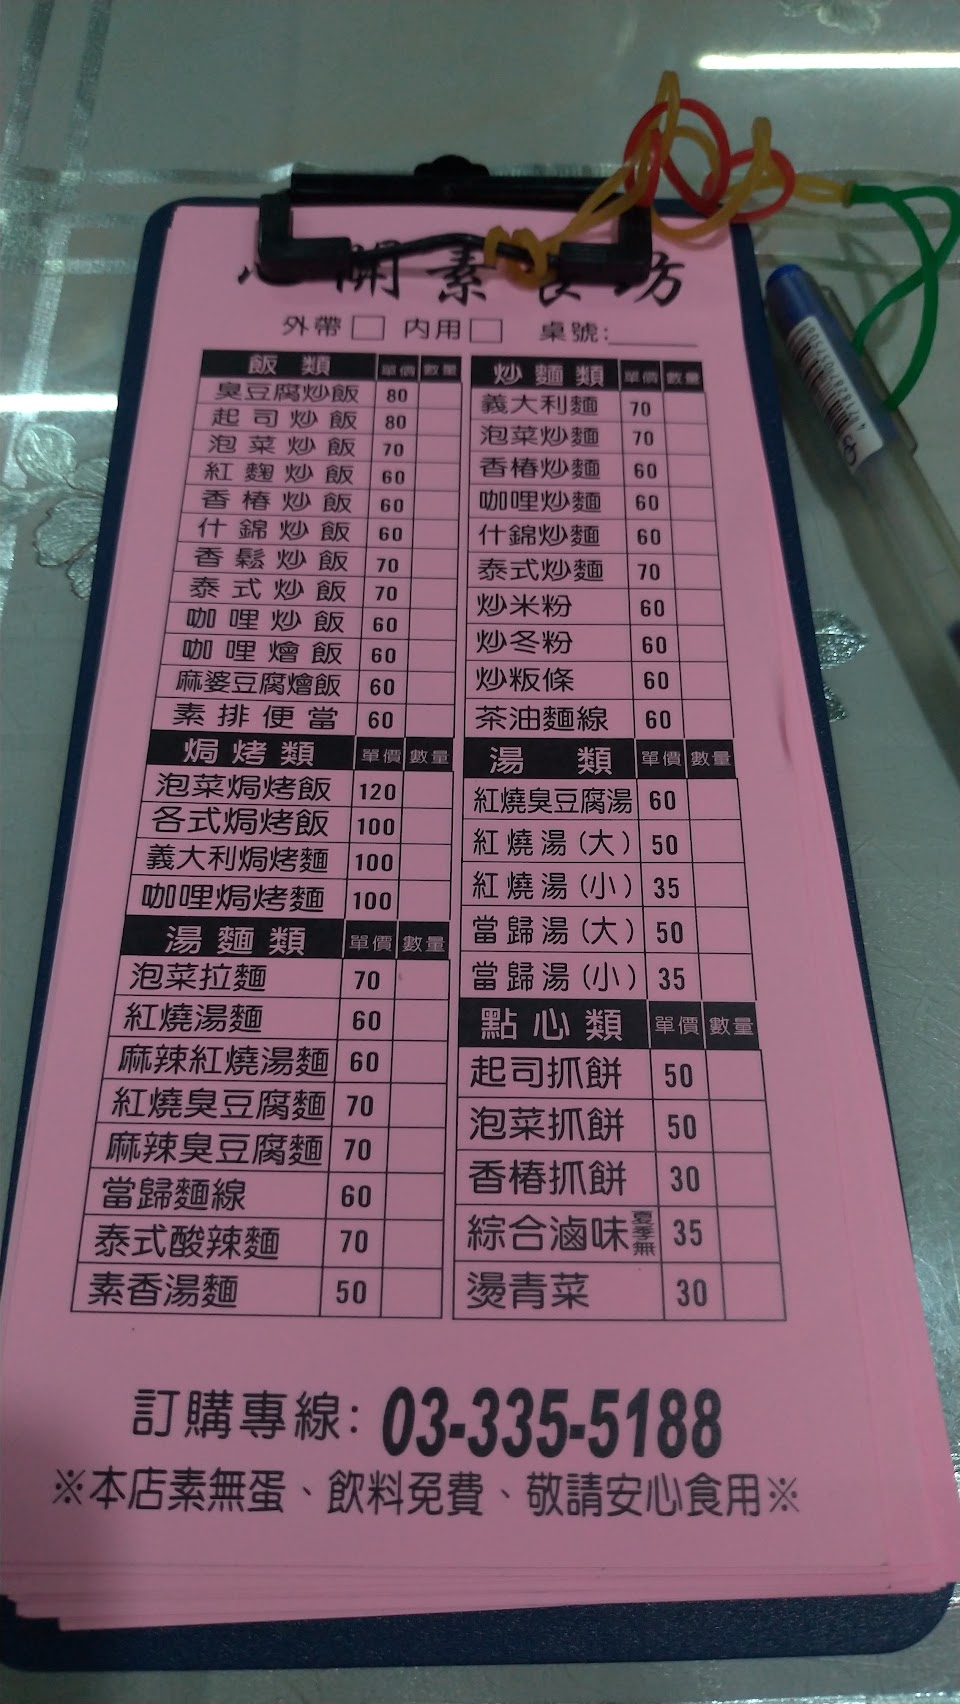 心開素食坊
外帶□ 內用□ 桌號:
飯類 單價 數量
臭豆腐炒飯 80
起司炒飯 80
泡菜炒飯 70
紅麴炒飯 60
香椿炒飯 60
什錦炒飯 60
香鬆炒飯 70
泰式炒飯 70
咖哩炒飯 60
咖哩燴飯 60
麻婆豆腐燴飯 60
素排便當 60
焗烤類 單價 數量
泡菜焗烤飯 120
各式焗烤飯 100
義大利焗烤麵 100
咖哩焗烤麵 100
湯麵類 單價 數量
泡菜拉麵 70
紅燒湯麵 60
麻辣紅燒湯麵 60
紅燒臭豆腐麵 70
麻辣臭豆腐麵 70
當歸麵線 60
泰式酸辣麵 70
素香湯麵 50
炒麵類 單價 數量
義大利麵 70
泡菜炒麵 70
香椿炒麵 60
咖哩炒麵 60
什錦炒麵 60
泰式炒麵 70
炒米粉 60
炒冬粉 60
炒粄條 60
茶油麵線 60
湯類 單價 數量
紅燒臭豆腐湯 60
紅燒湯(大) 50
紅燒湯(小) 35
當歸湯(大) 50
當歸湯(小) 35
點心類 單價 數量
起司抓餅 50
泡菜抓餅 50
香椿抓餅 30
綜合滷味 夏季無 35
燙青菜 30
訂購專線: 03-335-5188
※本店素無蛋、飲料免費、敬請安心食用※